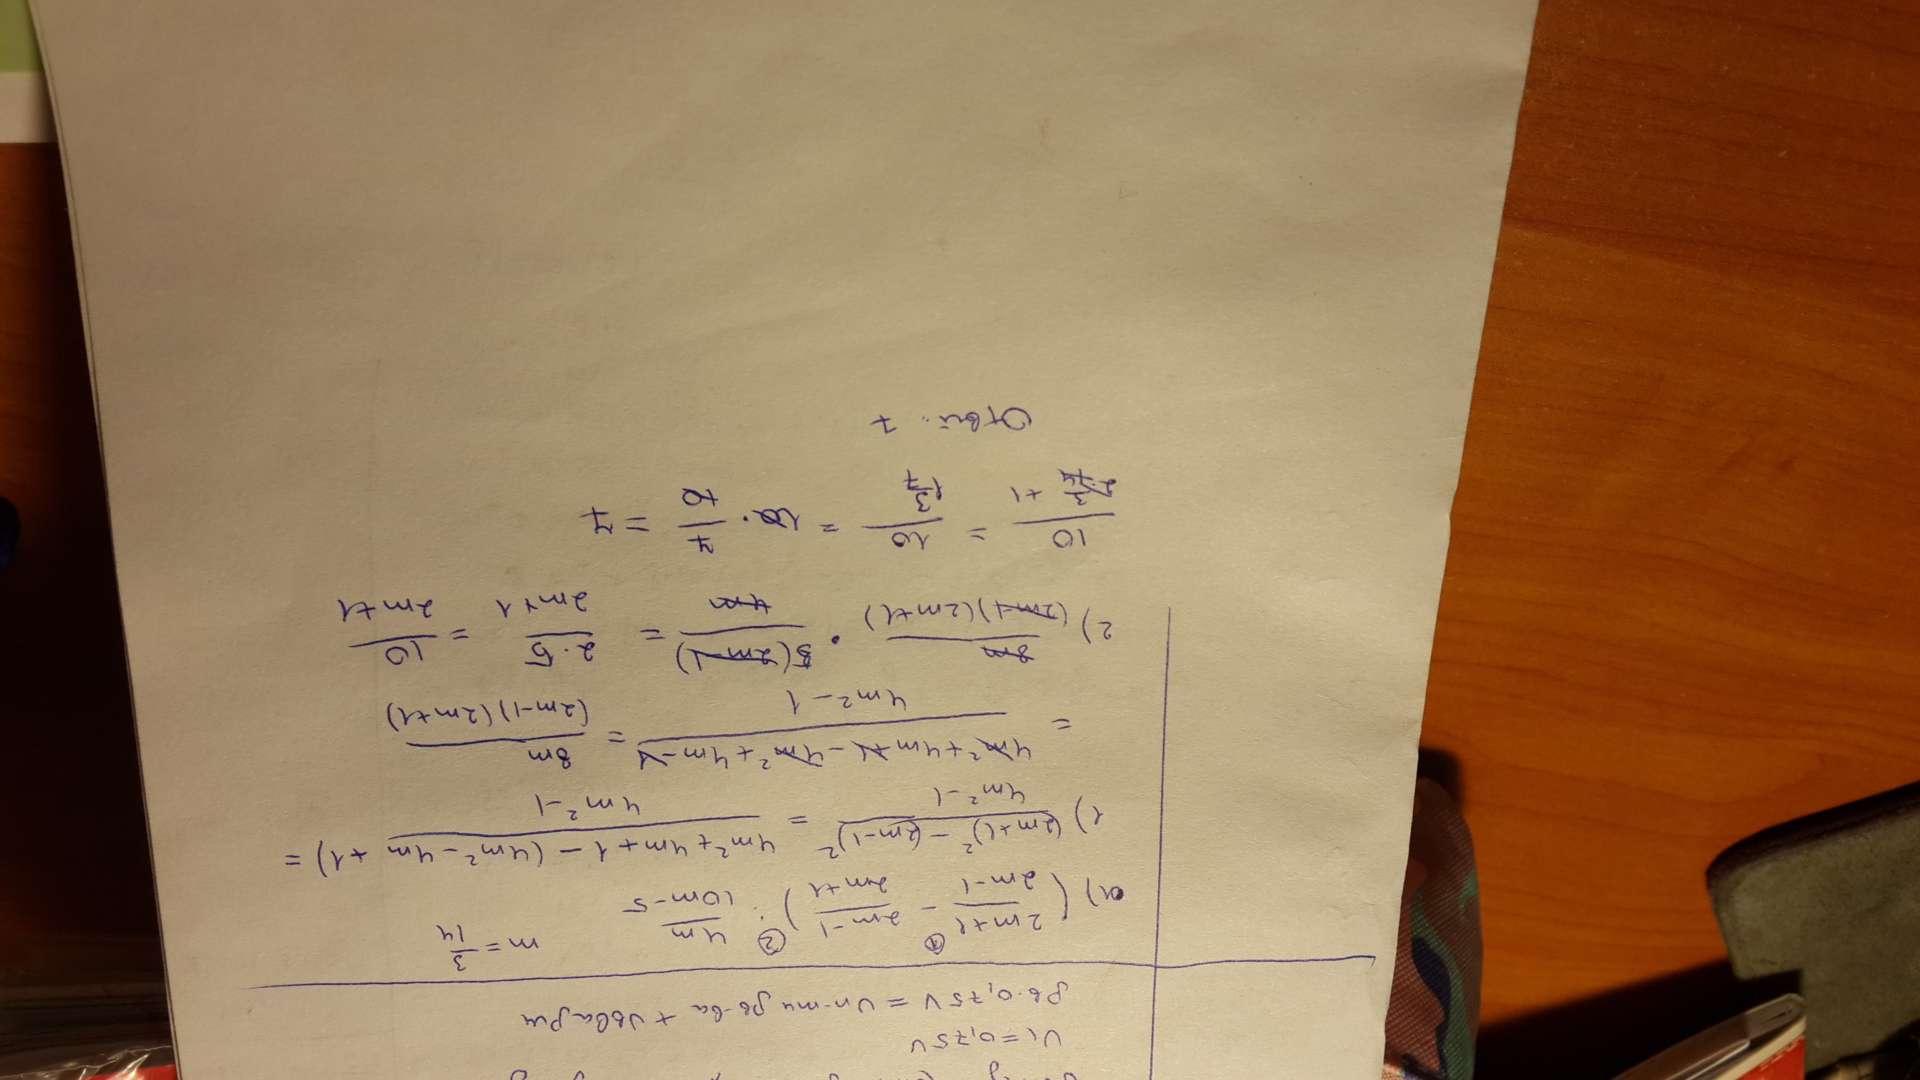 V₁ = 0,75V
m = 3/14
а) ( (2m+1)/(2m-1) ① - (2m-1)/(2m+1) ) ② : 4m/(10m-5)
1) ((2m+1)² - (2m-1)²)/(4m²-1) = (4m²+4m+1-(4m²-4m+1))/(4m²-1) =
= (4m²+4m+1-4m²+4m-1)/(4m²-1) = 8m/((2m-1)(2m+1))
2) 8m/((2m-1)(2m+1)) · 5(2m-1)/4m = 2·5/(2m+1) = 10/(2m+1)
10/(2·3/14 +1) = 10/(1 3/7) = 10 · 7/10 = 7
Ответ: 7